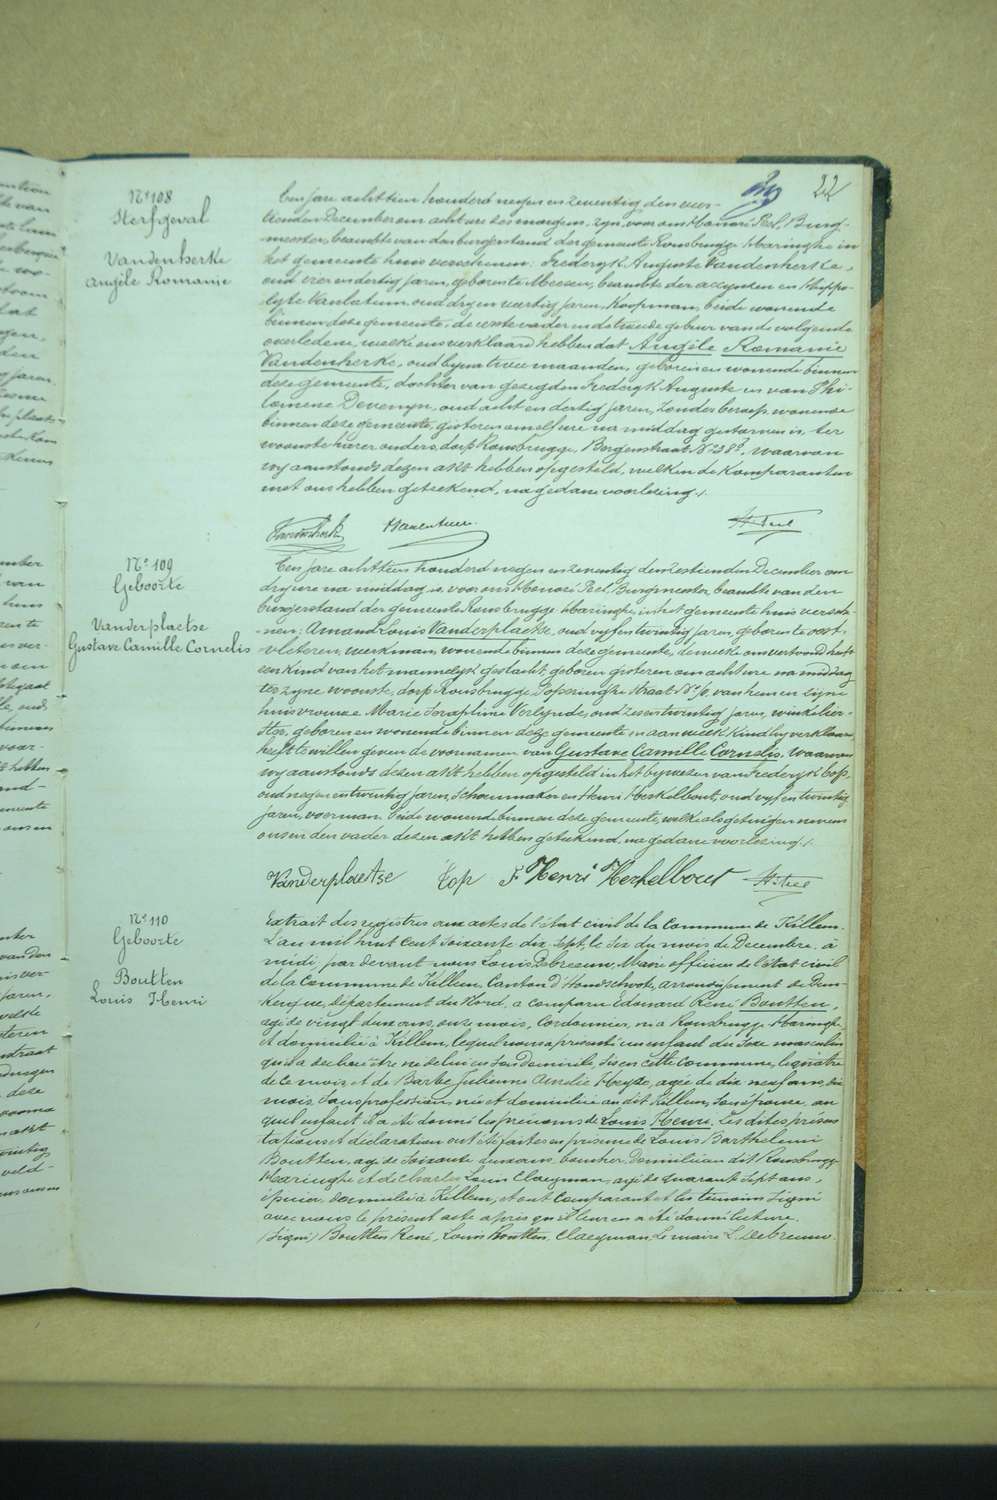 22
N° 108
Sterfgeval
Vandenkerke
Angèle Romanie
Een jare achttien honderd negen en zeventig den
December om acht ure des morgens, zyn, voor ons Honoré Peel, Burg-
meester, beambte van den burgerstand der gemeente Rousbrugge Haringhe in
het gemeente huis verschenen Frederyk Auguste Vandenkerke,
oud vier en dertig jaren, geboren te Meesen, beambte der accynsen en Hippo-
lyte Vanlatum oud dry en veertig jaren, Koopman, beide wonende
binnen deze gemeente, de eerste vader en de tweede gebuur van de volgende
overledene, welke ons verklaard hebben dat Angèle Romanie
Vandenkerke, oud byna twee maanden, geboren en wonende binnen
deze gemeente, dochter van gezegden Frederyk Auguste en van Phi-
lomene Devenyn, oud acht en dertig jaren, zonder beroep wonende
binnen deze gemeente, gisteren om elf ure na middag gestorven is, ter
woonste harer ouders, dorp Rousbrugge, Bergenstraat N° 38, waarvan
wy aanstonds dezen akt hebben opgesteld, welken de komparanten
met ons hebben geteekend, na gedane voorlezing ./.
H. Peel
N° 109
Geboorte
Vanderplaetse
Gustave Camille Cornelis
Een jare achttien honderd negen en zeventig den zestienden December om
dry ure na middag is voor ons Honoré Peel, Burgmeester, beambte van den
burgerstand der gemeente Rousbrugge Haringhe, in het gemeente huis versche-
nen: Amand Louis Vanderplaetse, oud vyf en twintig jaren, geboren te Oost-
vleteren, werkman, wonende binnen deze gemeente, dewelke ons vertoond heeft
een kind van het mannelyk geslacht, geboren gisteren om acht ure na middag
tes zyne woonste, dorp Rousbrugge, Popringhe straat N° van hem en zyne
huisvrouwe Marie Seraphine Verlynde, oud zes en twintig jaren, winkelier-
ster, geboren en wonende binnen deze gemeente en aan welk kind hy verklaart
heeft te willen geven de voornamen van Gustave Camille Cornelis. Waarvan
wy aanstonds dezen akt hebben opgesteld in het bywezen van Frederyk Top,
oud negen en twintig jaren, schoenmaker en Henri Herkelbout, oud vyf en twintig
jaren, voerman. Beide wonende binnen deze gemeente, welke als getuigen nevens
ons en den vader dezen akt hebben geteekend, na gedane voorlezing ./.
Vanderplaetse Top F. Henri Herkelbout H. Peel
N° 110
Geboorte
Boutten
Louis Henri
Extrait des registres aux actes de l'état civil de la Commune de Killem.
L'an mil huit cent soixante dix sept, le six du mois de Decembre, à
midi, par devant nous Louis Debreeuw, Maire officier de l'état civil
de la Commune de Killem, Canton d'Hondschoote, arrondissement de Dun-
kerque, Département du Nord, a comparu Edouard René Boutten,
agé de vingt deux ans, onze mois, Cordonnier, né a Rousbrugge Haringhe,
et domicilié à Killem, lequel nous a présenté un enfant du sexe masculin
qu'il a déclaré être né de lui en son domicile, sis en cette commune, le quatre
de ce mois et de Barbe Julienne Amélie Heyte, agée de dix neuf ans, dix
mois, sans profession, née et domiciliée au dit Killem, son épouse, au
quel enfant il a été donné les prénoms de Louis Henri. Les dites présen
tations et déclaration ont été faites en présence de Louis Barthelemi
Boutten, agé de soixante deux ans, boucher, domicilié au dit Rousbrugge
Haringhe et de Charles Louis Claeyman, agé de quarante sept ans,
épicier, domicilié à Killem, et ont comparant et les témoins signé
avec nous le présent acte après qu'il leur en a été donné lecture.
(Signé) Boutten René, Louis Boutten, Claeyman. Le maire L. Debreeuw.